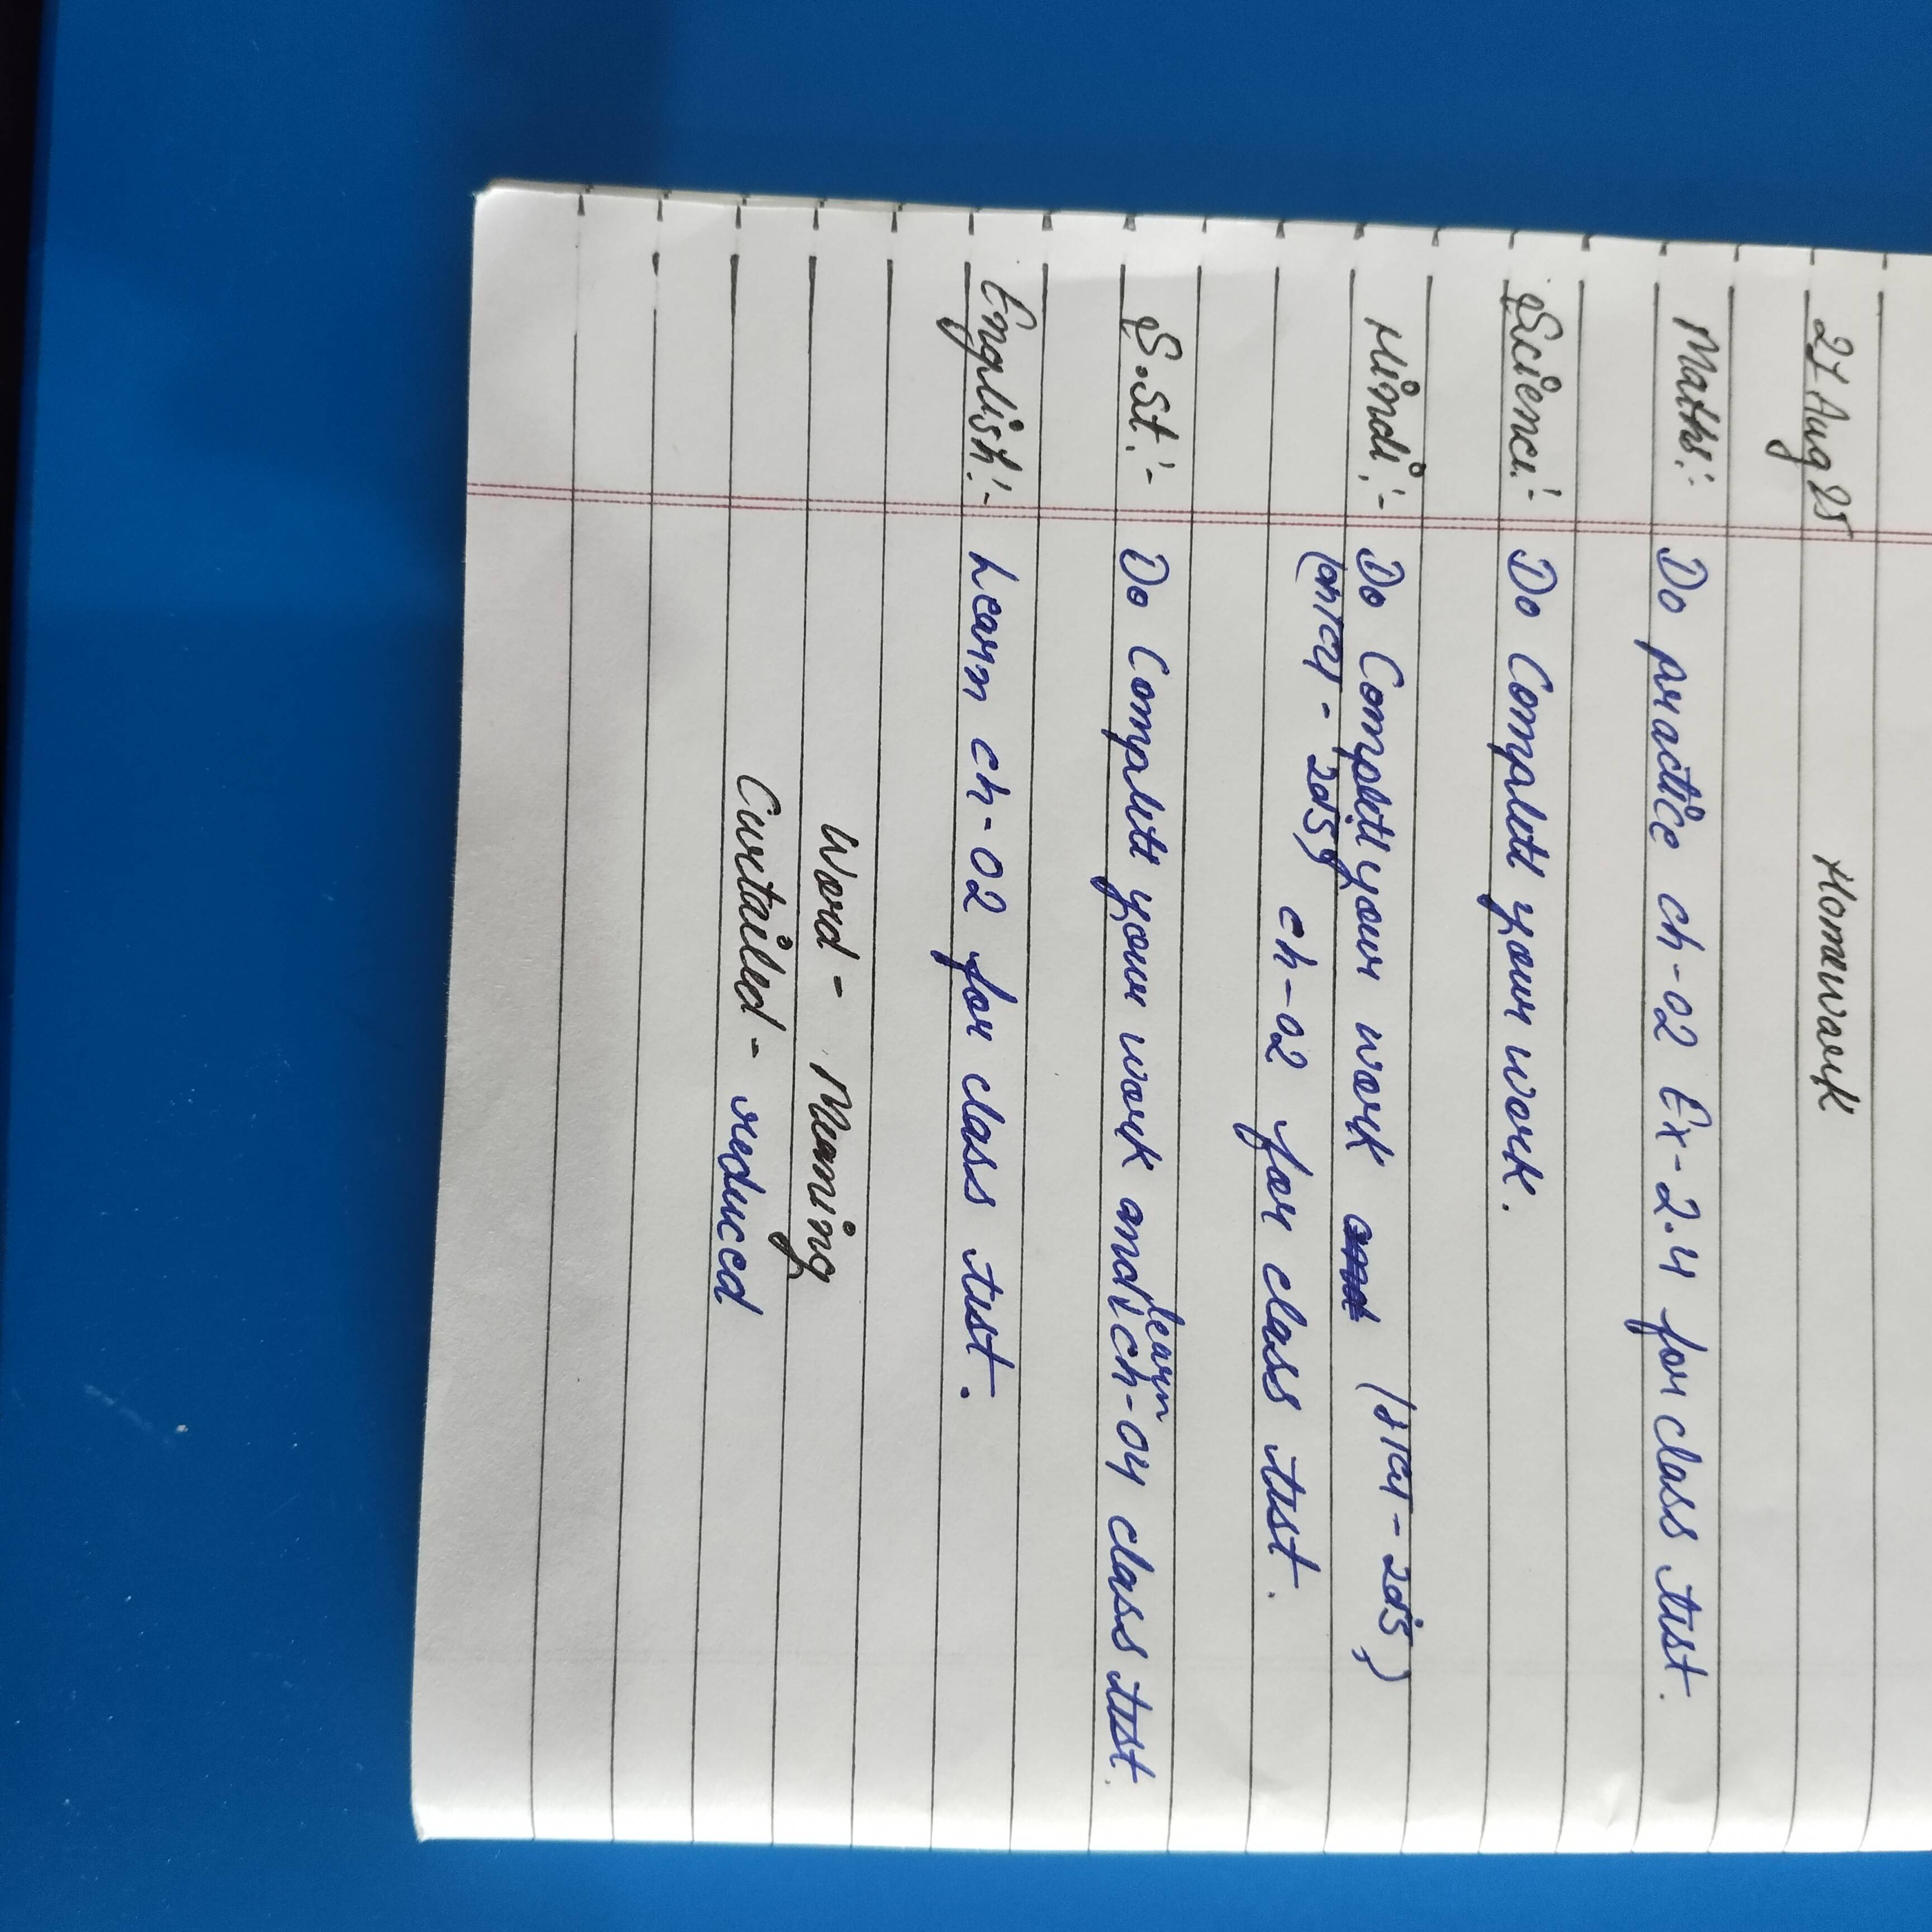 Aug 25 Homework
Maths:- Do practice ch-02 Ex-2.4 for class test.
Science:- Do Complete your work.
Hindi:- Do Complete your work
ch-02 for class test.
S.St:- Do Complete your work and learn ch-04 class test.
English:- Learn ch-02 for class test.
Word - Meaning
Curtailed - reduced